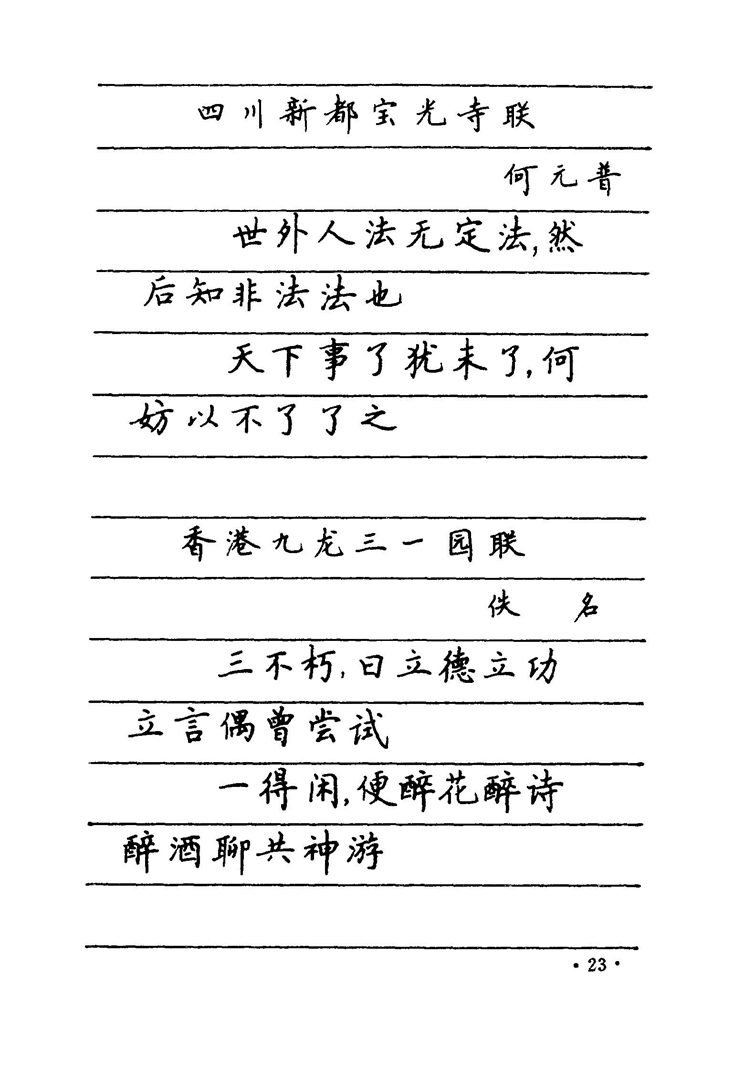 四川新都宝光寺联
何元普
世外人法无定法,然
后知非法法也
天下事了犹未了,何
妨以不了了之
香港九龙三一园联
佚 名
三不朽,曰立德立功
立言偶曾尝试
一得闲,便醉花醉诗
醉酒聊共神游
·23·